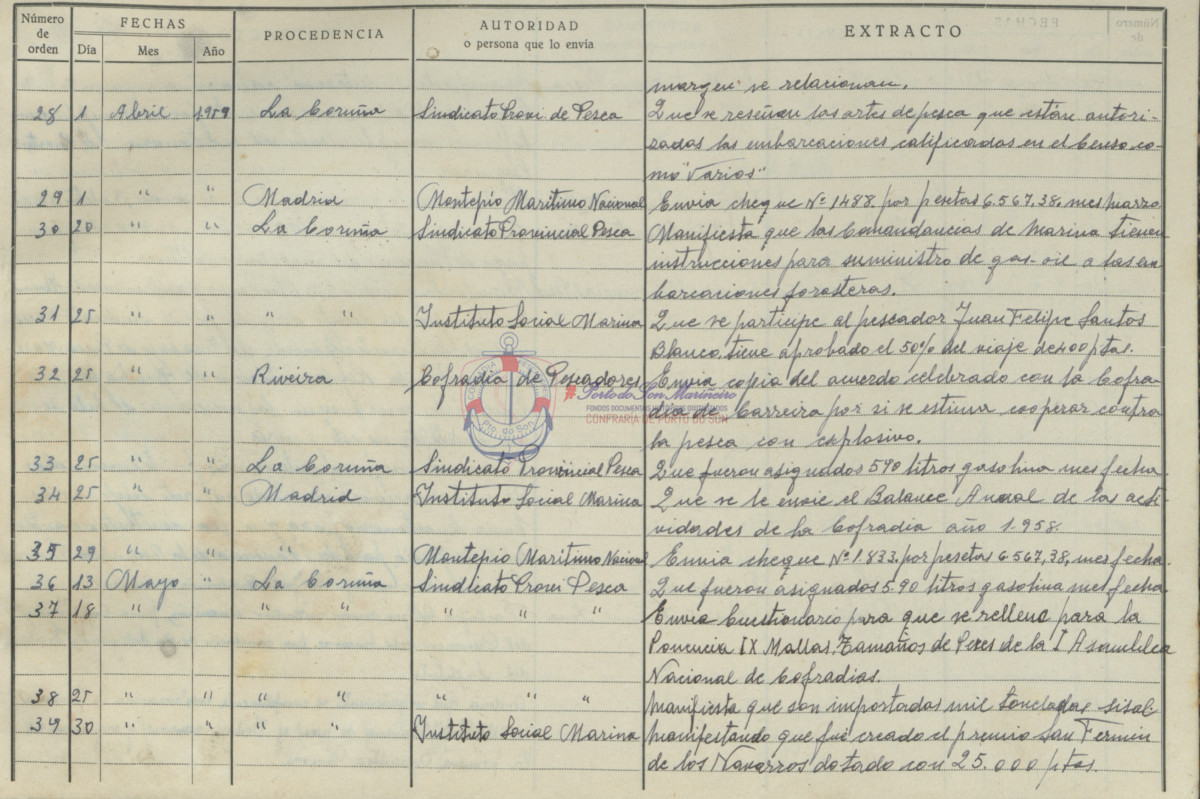 Número de orden | FECHAS | PROCEDENCIA | AUTORIDAD o persona que lo envía | EXTRACTO
Día | Mes | Año
margen se relacionan.
28 1 Abril 1959 La Coruña Sindicato Provi. de Pesca Que se reseñan las artes de pesca que están autori-
zadas las embarcaciones calificadas en el Censo co-
mo "Varios"
29 1 " " Madrid Montepío Maritimo Nacional Envia cheque Nº 1488 por pesetas 6.567,38, mes marzo
30 20 " " La Coruña Sindicato Provincial Pesca Manifiesta que las Comandancias de Marina tienen
instrucciones para suministro de gas-oil a las em
barcaciones forasteras.
31 25 " " " " Instituto Social Marina Que se participe al pescador Juan Felipe Santos
Blanco, tiene aprobado el 50% del viaje de 400 ptas.
32 25 " " Riveira Cofradia de Pescadores Envia copia del acuerdo celebrado con la Cofra-
dia de Carreira por si se estima cooperar contra
la pesca con explosivo.
33 25 " " La Coruña Sindicato Provincial Pesca Que fueron asignados 590 litros gasolina mes fecha.
34 25 " " Madrid Instituto Social Marina Que se le envie el Balance Anual de las acti-
vidades de la Cofradia año 1.958.
35 29 " " " Montepio Maritimo Nacional Envia cheque Nº 1.833. por pesetas 6.567,38, mes fecha.
36 13 Mayo " La Coruña Sindicato Provi Pesca Que fueron asignados 5.90 litros gasolina mes fecha
37 18 " " " " " " " Envia Cuestionario para que se rellene para la
Ponencia IX Mallas. Tamaños de Peces de la I Asamblea
Nacional de Cofradias.
38 25 " " " " " " " Manifiesta que son importadas mil toneladas sisal
39 30 " " " " Instituto Social Marina Manifestando que fué creado el premio San Fermin
de los Navarros dotado con 25.000 ptas.
#Porto do Son Mariñeiro
CONFRARÍA DE PORTO DO SON
Pto. do Son